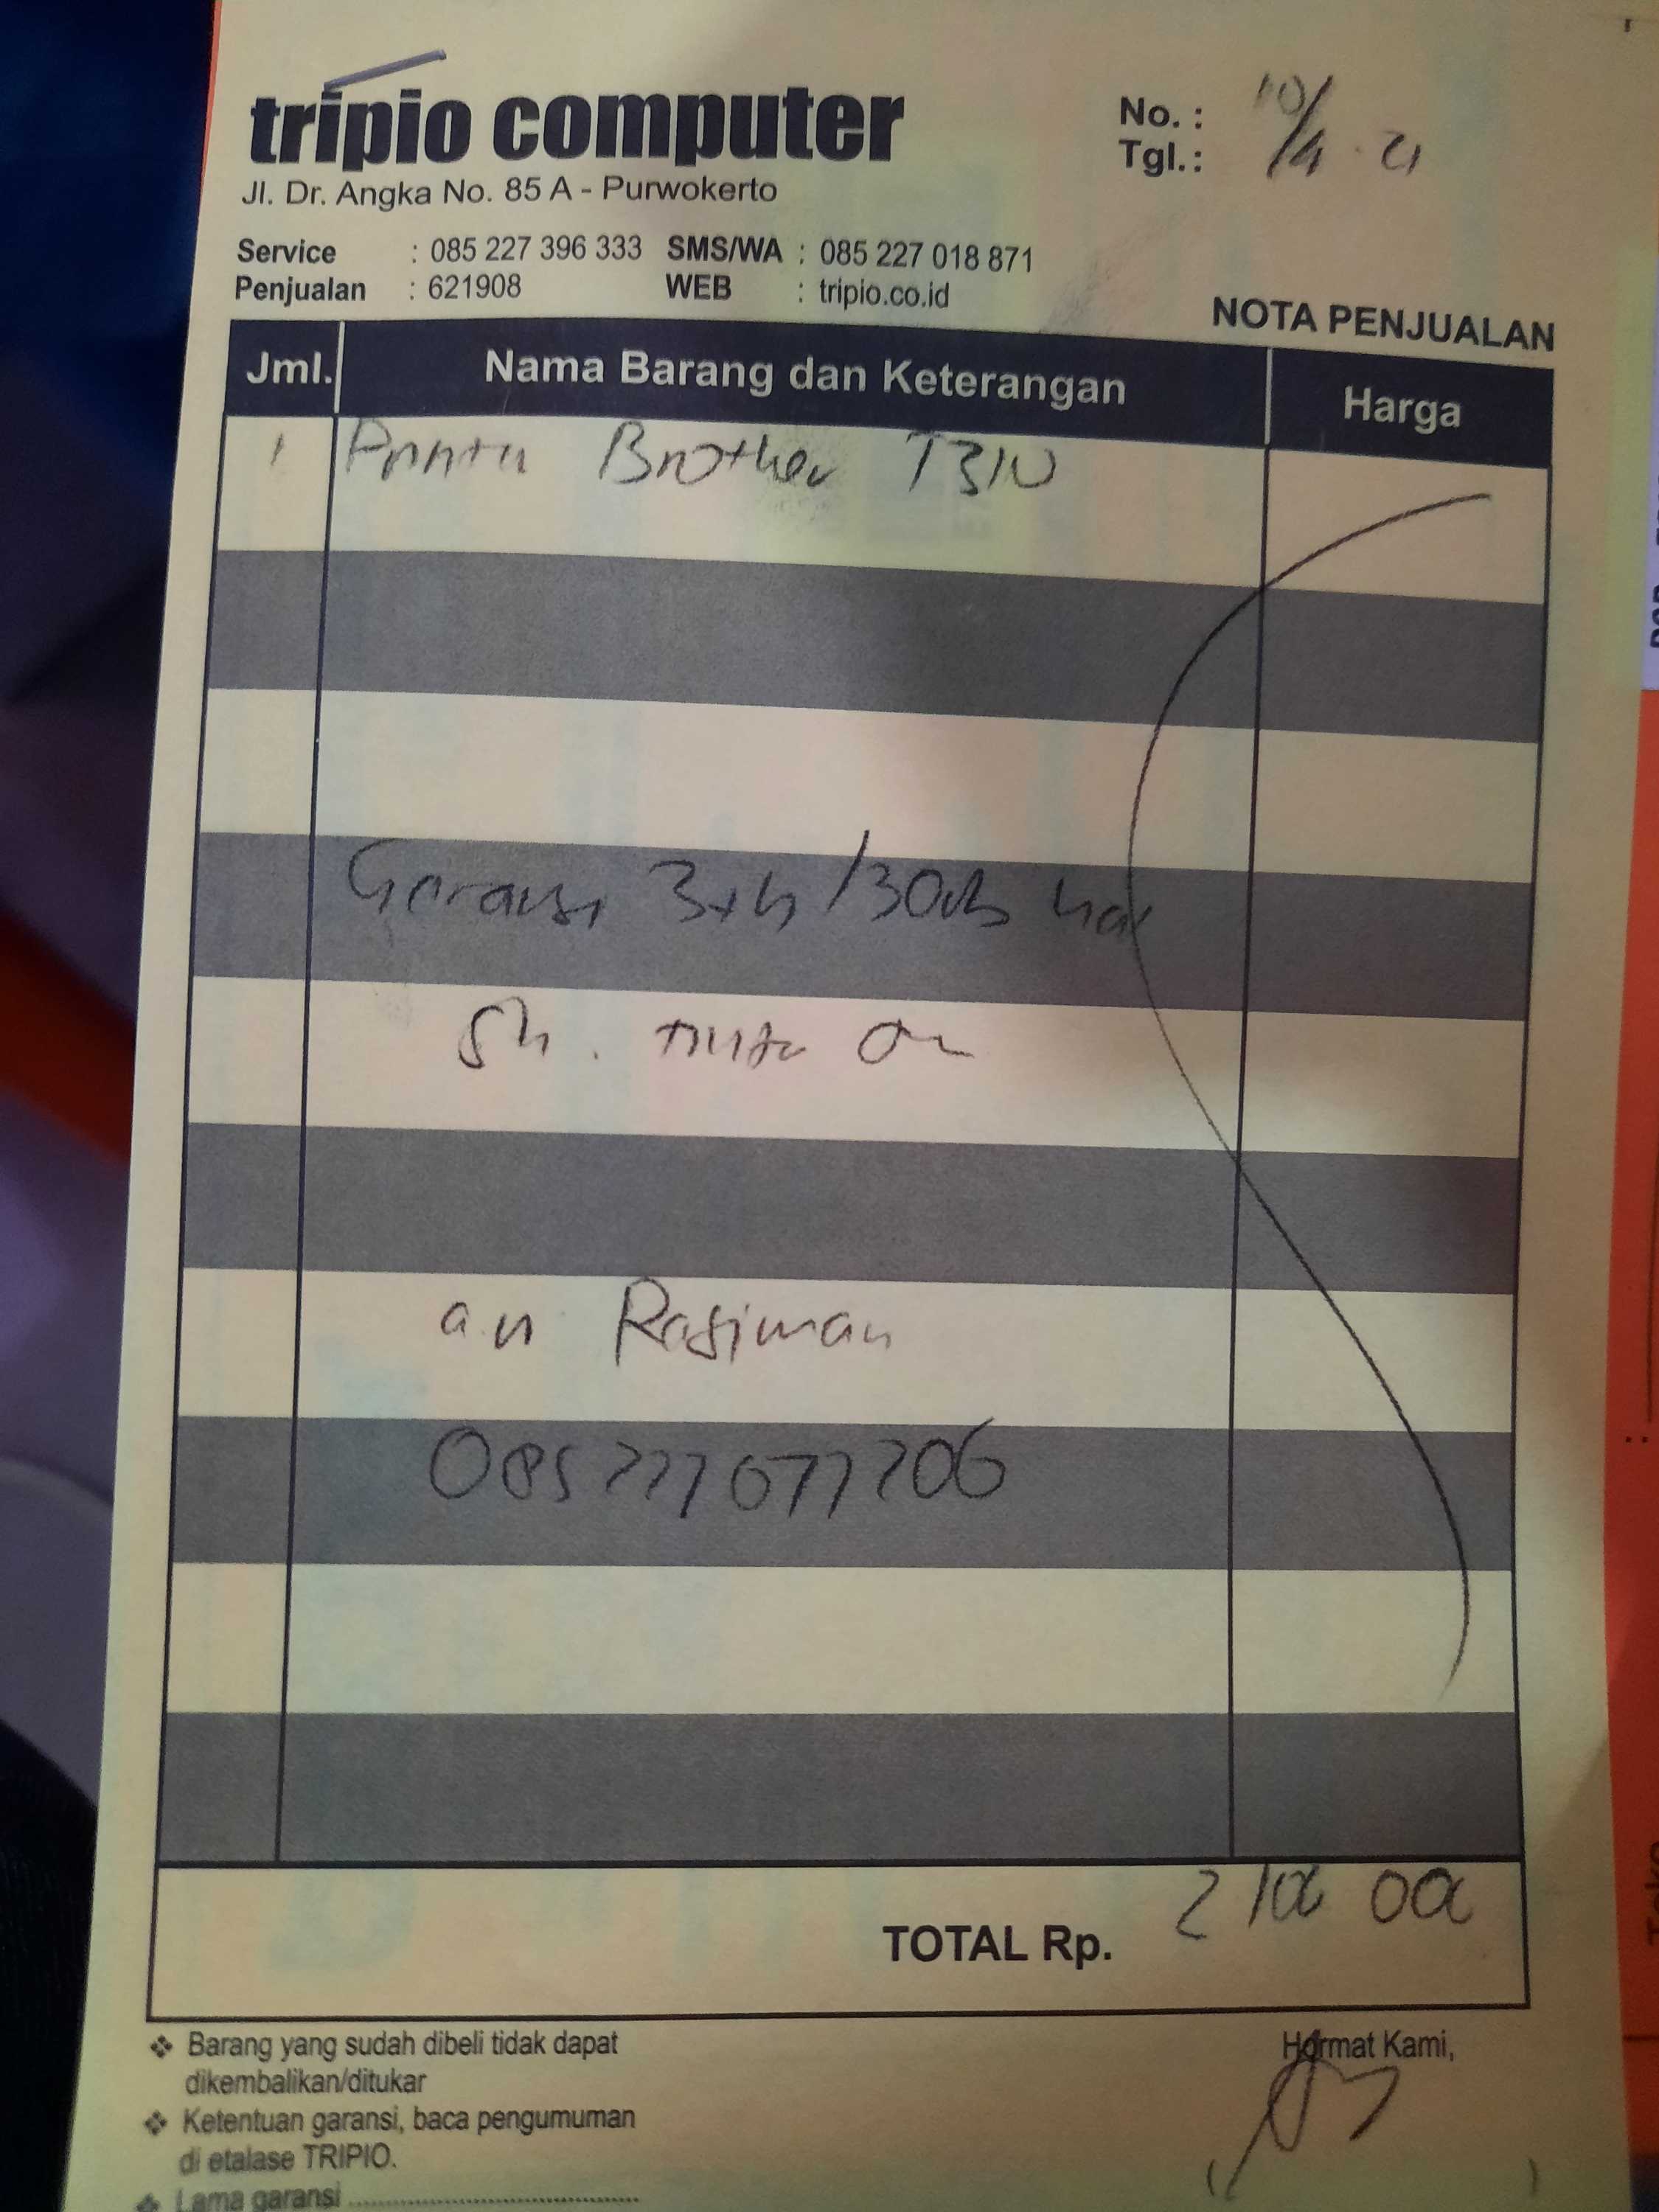 tripio computer
No. :
Tgl.: 10/4 . 21
Jl. Dr. Angka No. 85 A - Purwokerto
Service : 085 227 396 333 SMS/WA : 085 227 018 871
Penjualan : 621908 WEB : tripio.co.id
NOTA PENJUALAN
Jml. Nama Barang dan Keterangan Harga
1 Printer Brother T310
Garansi 3th/30rb
an Rasiman
TOTAL Rp. 2100 000
Barang yang sudah dibeli tidak dapat
dikembalikan/ditukar
Hormat Kami,
Ketentuan garansi, baca pengumuman
di etalase TRIPIO.
Lama garansi